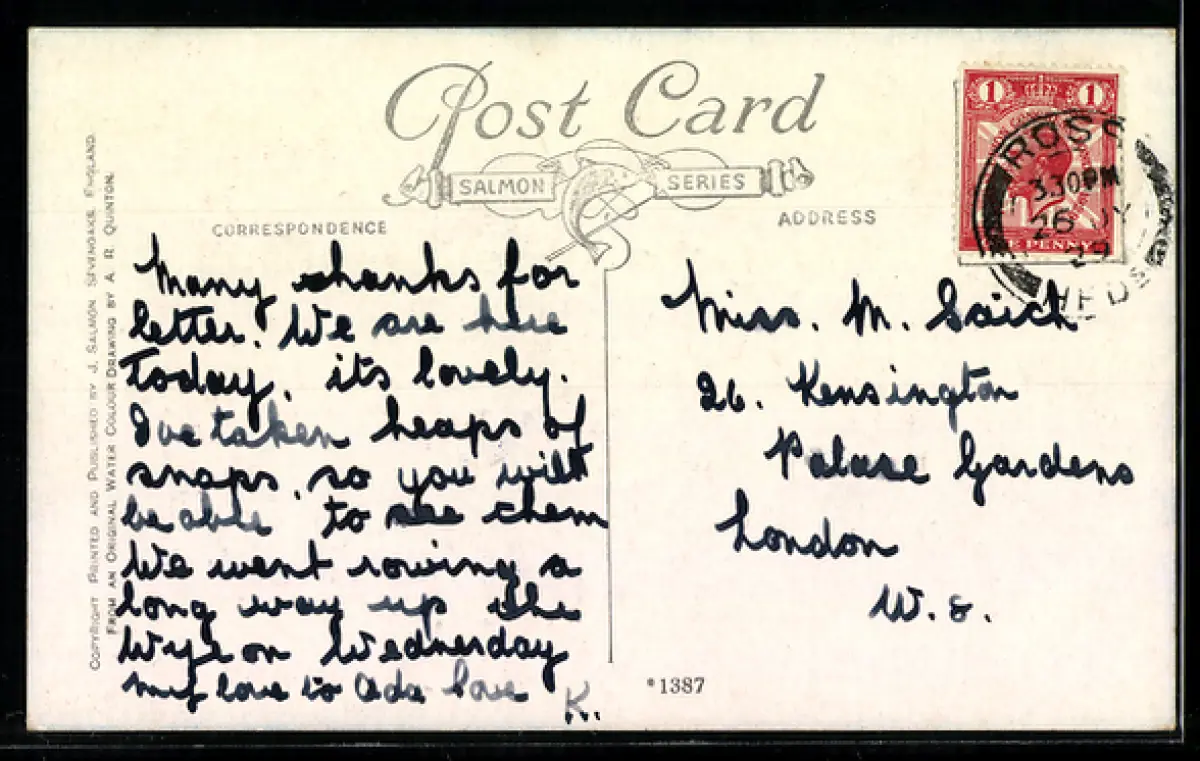 Post Card
SALMON SERIES
CORRESPONDENCE
ADDRESS
1 1
ROSS
3.30PM
26 JY
29
E PENNY
COPYRIGHT PRINTED AND PUBLISHED BY J. SALMON SEVENOAKS ENGLAND.
FROM AN ORIGINAL WATER COLOUR DRAWING BY A. R. QUINTON.
Many thanks for
letter. We are here
Today, its lovely.
Ive taken heaps of
snaps, so you will
be able to see them
We went rowing a
long way up the
Wye on Wednesday
my love to Ada love
K.
Miss. M. Saich
26. Kensington
Palace Gardens
London
W. 8.
*1387